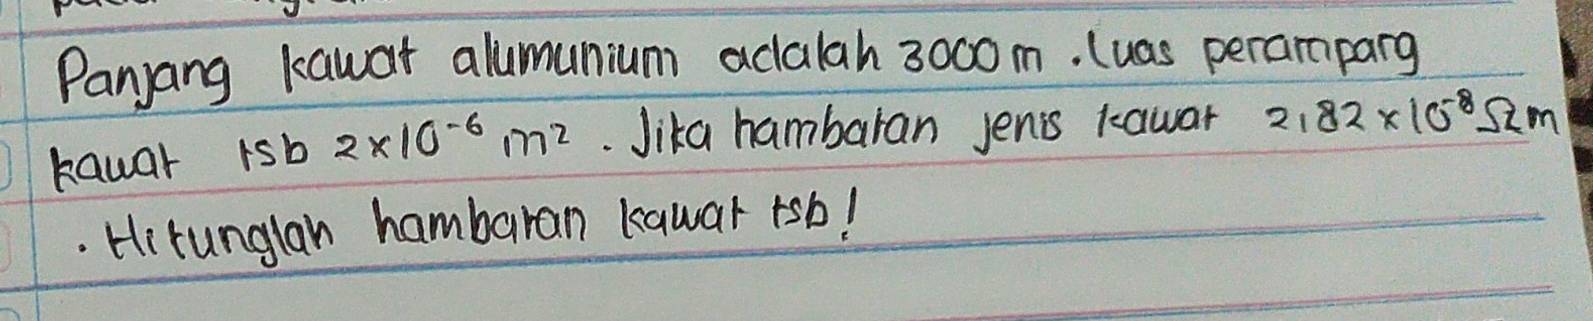 Panjang kawat alumunium adalah 3000 m . Luas perampang
kawat tsb 2 x 10⁻⁶ m² . Jika hambatan jenis kawat 2,82 x 10⁻⁸ Ωm
. Hitunglah hambatan kawat tsb !